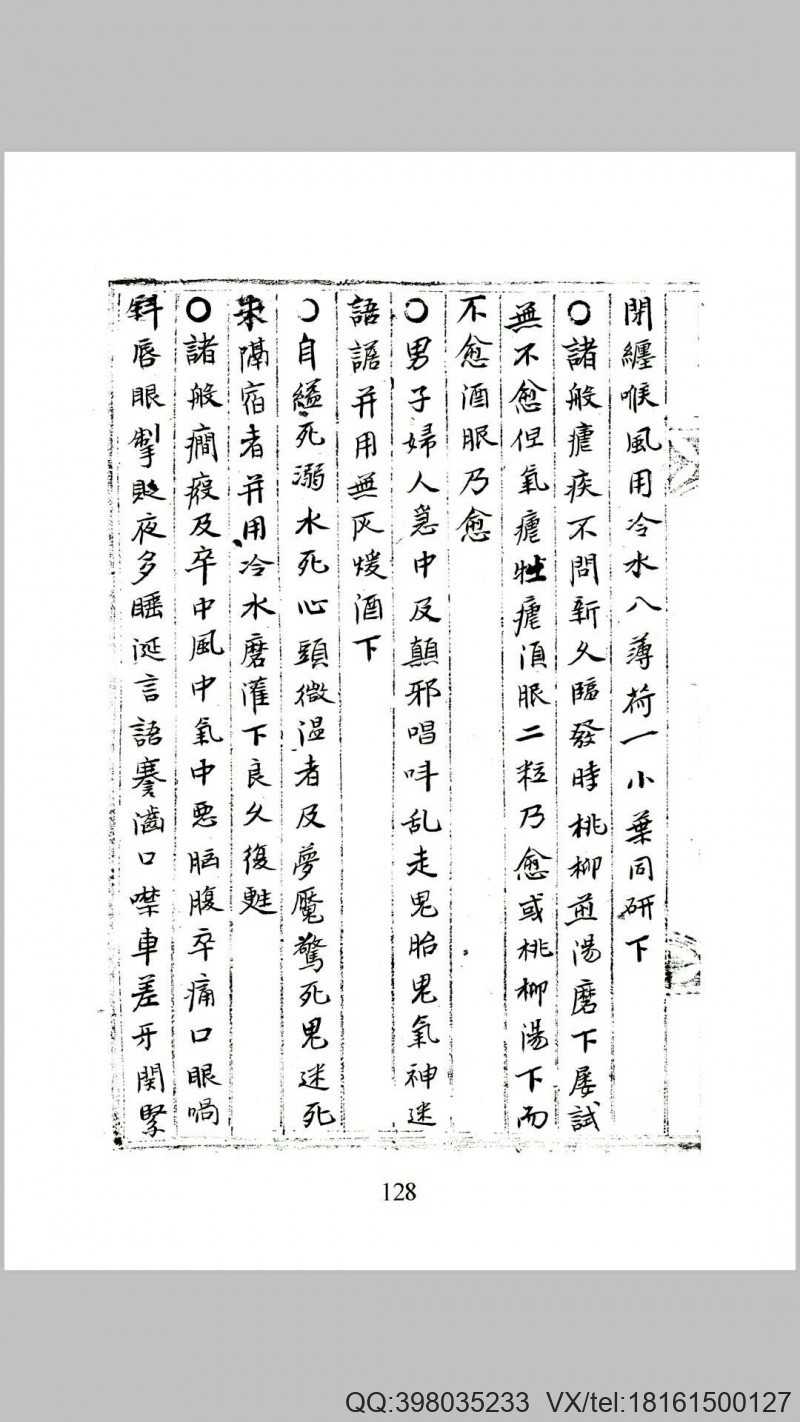 閉纏喉風用冷水八薄荷一小葉同研下
〇諸般瘧疾不問新久臨發時桃柳煎湯磨下屡試
無不愈但氣瘧牡瘧須服二粒乃愈或桃柳湯下而
不愈酒服乃愈
〇男子婦人急中及顛邪唱呌乱走鬼胎鬼氣神迷
語譫并用無灰煖酒下
〇自縊死溺水死心頭微温者及夢魘驚死鬼迷死
未隔宿者并用冷水磨灌下良久復甦
〇諸般癎癈及卒中風中氣中悪胸腹卒痛口眼喎
斜唇眼掣夜多睡涎言語蹇澁口噤車差牙関緊
128
QQ:398035233 VX/tel:18161500127